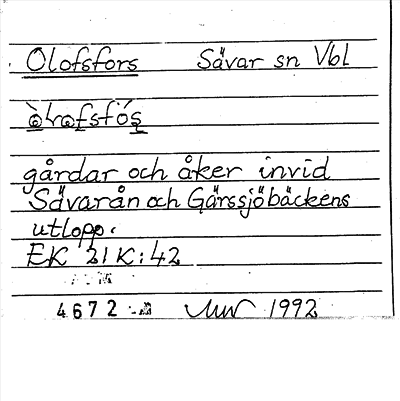 Olofsfors Sävar sn Vbl
gårdar och åker invid
Sävarån och Gärssjöbäckens
utlopp.
EK 21K:42
4672
1992